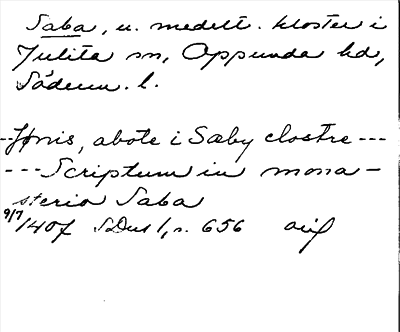 Saba, u. medelt. kloster i
Julita sn, Oppunda hd,
Söderm. l.
--Jönis, abote i Sæby clostre ---
---Scriptum in mona-
sterio Saba
9/7 1407 SDns 1, s. 656